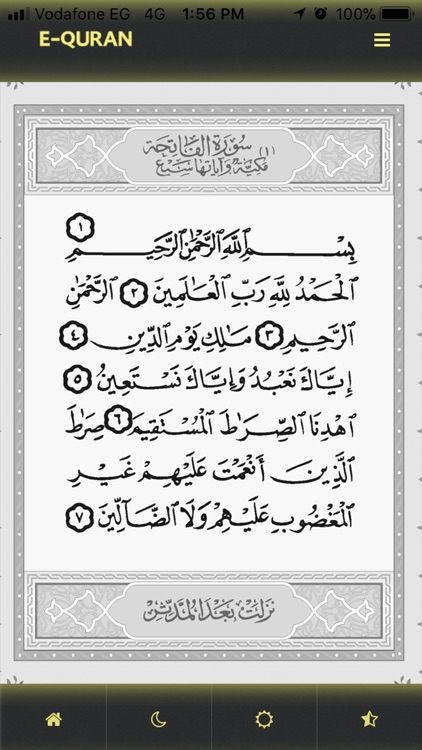 Vodafone EG 4G 1:56 PM 100%
E-QURAN
سُورَةُ الفَاتِحَة (١)
مَكِّيَّة وَآيَاتُهَا سَبْع
بِسْمِ ٱللَّهِ ٱلرَّحْمَٰنِ ٱلرَّحِيمِ ١
ٱلْحَمْدُ لِلَّهِ رَبِّ ٱلْعَالَمِينَ ٢ ٱلرَّحْمَٰنِ
ٱلرَّحِيمِ ٣ مَٰلِكِ يَوْمِ ٱلدِّينِ ٤
إِيَّاكَ نَعْبُدُ وَإِيَّاكَ نَسْتَعِينُ ٥
ٱهْدِنَا ٱلصِّرَٰطَ ٱلْمُسْتَقِيمَ ٦ صِرَٰطَ
ٱلَّذِينَ أَنْعَمْتَ عَلَيْهِمْ غَيْرِ
ٱلْمَغْضُوبِ عَلَيْهِمْ وَلَا ٱلضَّآلِّينَ ٧
نَزَلَتْ بَعْدَ المُدَّثِّر